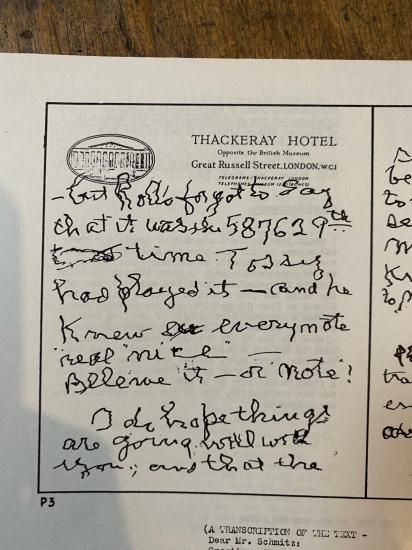 THACKERAY HOTEL
Opposite the British Museum
Great Russell Street, LONDON, W.C.1
TELEGRAMS - THACKERAY LONDON
- but forgot to say
that it was the 587629th
time Tossy
had played it — and he
Knew every note
real "nice" —
Believe it — or "Note"!
I do hope things
are going well with
you; and that the
P3
(A TRANSCRIPTION OF THE TEXT -
Dear Mr. Schmitz: